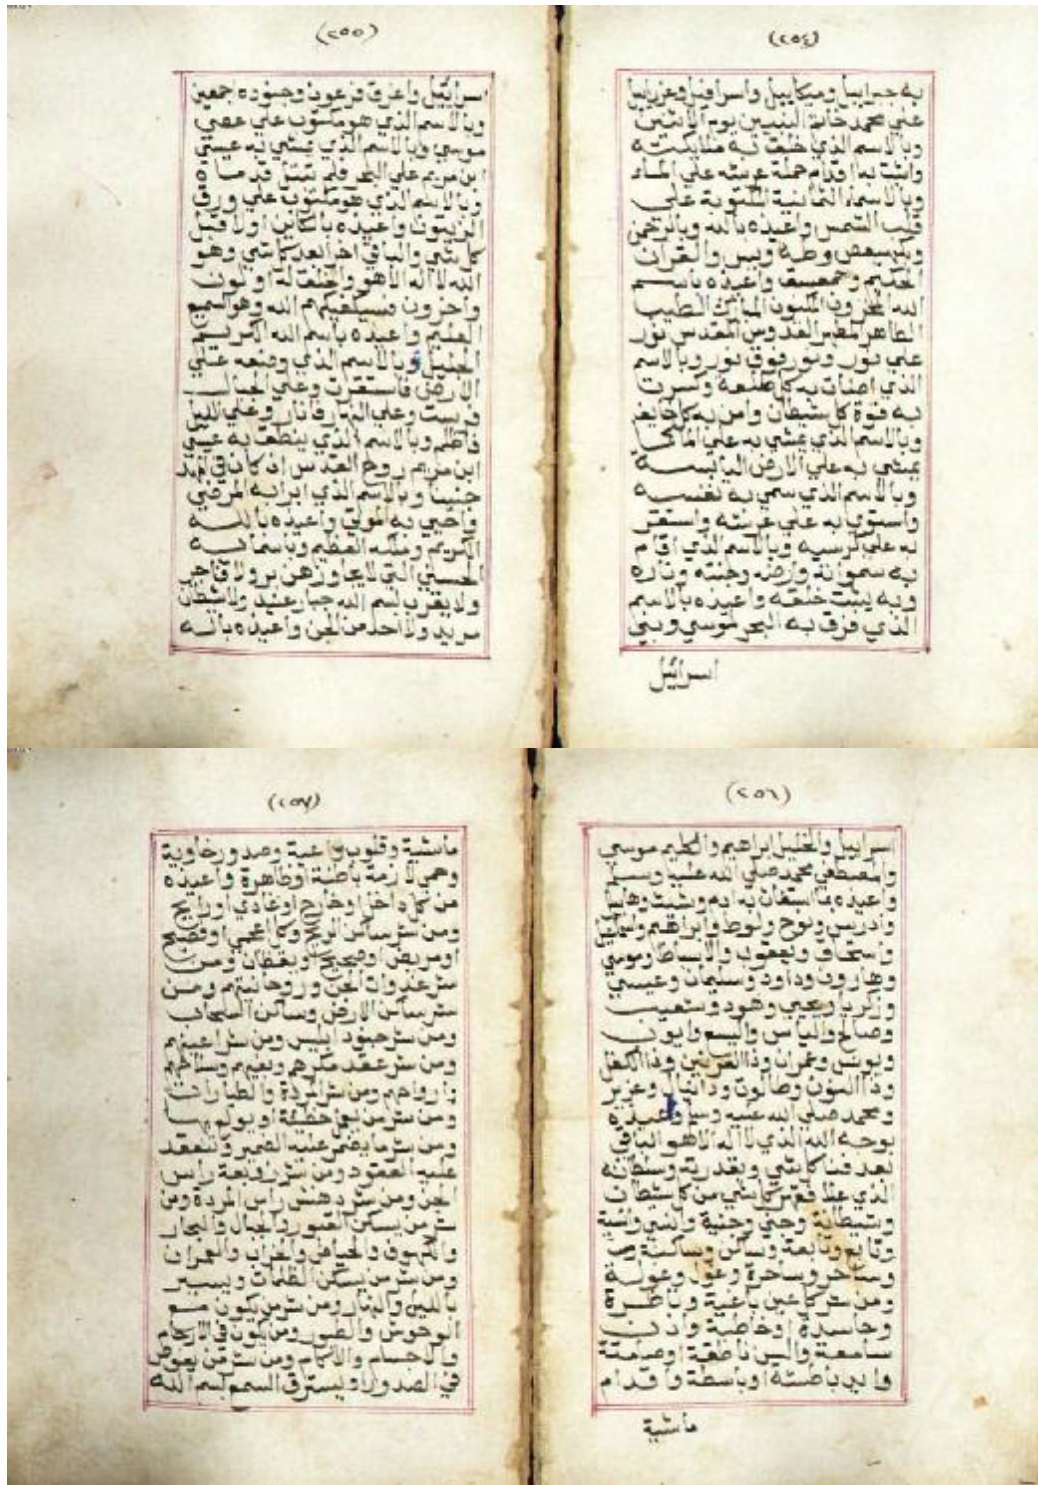 (٢٥٤)
به جبراييل وميكاييل واسرافيل وعزراييل
علي محمد خاتم النبيين يوم الاثنين
وبالاسم الذي خلقت به ملايكته
به اقدام حملة عرشه علي الماء
وبالاسماء الثمانية المكتوبة علي
قلب الشمس واعيذه بالله وبالرحمن
وبكهيعص وطه ويس والقران
الحكيم وحمعسق واعيذه باسم
الله المخزون المكنون المبارك الطيب
الطاهر المطهر القدوس المقدس نور
علي نور ونور فوق نور وبالاسم
الذي به كل ظلمة وكسرت
به قوة كل شيطان وامن به كل خايف
وبالاسم الذي يمشي به علي الماء كما
يمشي به علي الارض اليابسة
وبالاسم الذي سمي به نفسه
واستوي به علي عرشه واستقر
به علي كرسيه وبالاسم الذي اقام
به سمواته وارضه وجنته وناره
وبه خلقه واعيذه بالاسم
الذي فرق به البحر لموسي وبني
اسرائيل
(٢٥٥)
اسرائيل واغرق فرعون وجنوده جمعين
وبالاسم الذي هو مكتوب علي عصي
موسي وبالاسم الذي يمشي به عيسي
ابن مريم علي فلم تبتل قدماه
وبالاسم الذي هو مكتوب علي ورق
الزيتون واعيذه بالكاين اولا قبل
كل شي والباقي اخر بعد كل شي وهو
الله لا اله الا هو والخلق له اولون
واخرون فسيكفيكهم الله وهو السميع
العليم واعيذه باسم الله الكريم
الجليل وبالاسم الذي وضعه علي
الارض فاستقرت وعلي الجبال
فرست وعلي النهار فانار وعلي الليل
فاظلم وبالاسم الذي ينطق به عيسي
ابن مريم روح القدس اذ كان في المهد
وبالاسم الذي ابرا به المرضي
واحيي به الموتي واعيذه بالله
الكريم العظيم وباسمايه
الحسني التي لا يجاوزهن بر ولا فاجر
ولا يقرب لسم الله جبار عنيد ولا شيطان
مريد ولا احد من الجن واعيذه باله
(٢٥٦)
اسراييل والخليل ابراهيم والكليم موسي
والمصطفي محمد صلي الله عليه وسلم
واعيذه بما استعان به ادم وشيث وهابيل
وادريس ونوح ولوط وابراهيم واسماعيل
واسحاق ويعقوب والاسباط وموسي
وهارون وداود وسليمان وعيسي
وزكريا ويحيي وهود وشعيب
وصالح والياس واليسع وايوب
ويونس وعمران وذا القرنين وذا الكفل
وذا النون وطالوت ودانيال وعزير
ومحمد صلي الله عليه وسلم واعيذه
بوجه الله الذي لا اله الا هو الباقي
بعد فنا كل شي وبقدرته وسلطانه
الذي من كل شيطان
وشيطانة وجني وجنية وانسي وانسية
وتابع وتابعة وساكن وساكنة
وساحر وساحرة وغول وغولة
ومن شر كل عين باغية وناظرة
وحاسدة او خاطية واذن
سامعة والسن ناطقة او صامتة
وايد باطشة او باسطة واقدام
ماشية
(٢٥٧)
ماشية وقلوب واعية وصدور خاوية
وهي لازمة باطنة او ظاهرة واعيذه
من كل داخل او خارج او غادي او رايح
ومن شر ساكن الريح وكل اعجمي او فصيح
او مريض او صحيح ويقظان ومن
شر الجن وروحانيتهم ومن
شر ساكن الارض وساكن السحاب
ومن شر جنود ابليس ومن شر اعينهم
ومن شر عقد مكرهم
وارواحهم ومن شر المردة والطيارات
ومن شر من يعمل خطيئة او
ومن شر ما يضمر عليه الضمير وتنعقد
عليه العقود ومن شر زوبعة راس
الجن ومن شر دهنش راس المردة ومن
شر من يسكن القبور والجبال والبحار
والكهوف والحياض والخراب والعمران
ومن شر من يسكن الظلمات ويسير
بالليل والنهار ومن شر من يكون مع
الوحوش والطيور ومن يكون في الارحام
والاجسام والاكمام ومن شر من
في الصدور او يسترق السمع لسم الله